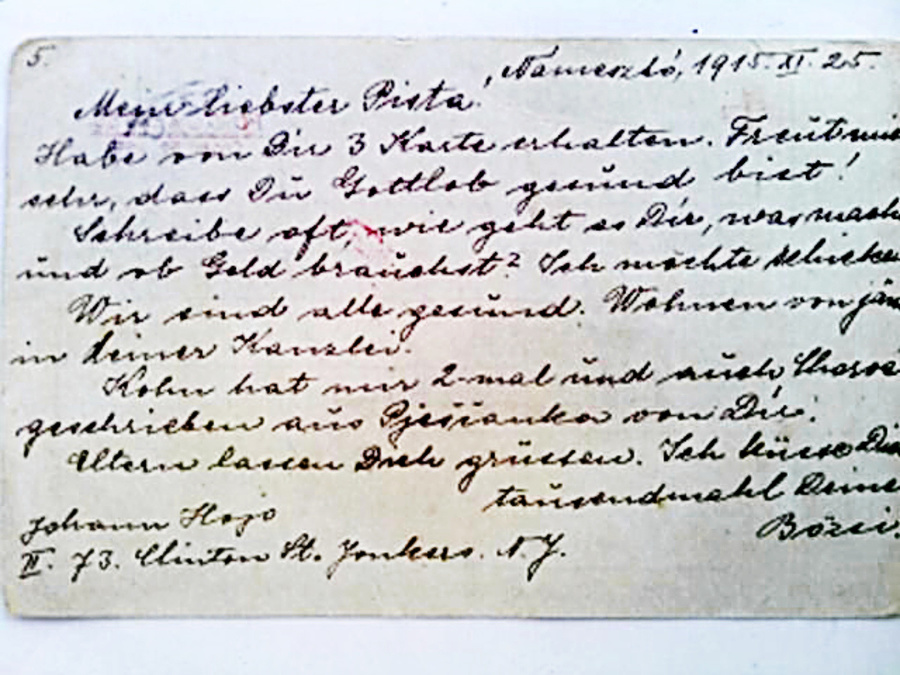 5.
Námesztó, 1915. XI. 25.
Mein liebster Pista!
Habe von Dir 3 Karte erhalten. Freut
sehr, dass Du Gottlob gesund bist!
Schreibe oft, wie geht es Dir, was
und ob Geld brauchst? Ich möchte
Wir sind alle gesund. Wohnen von
in deiner Kanzlei.
Kohn hat mir 2-mal und auch
geschrieben aus Pjessanka von Dir.
Eltern lassen Dich grüssen. Ich küsse
tausendmahl Deine
Johann Hojo
Bözsi.
II. 73. Clinton St. Jonkers. N.J.